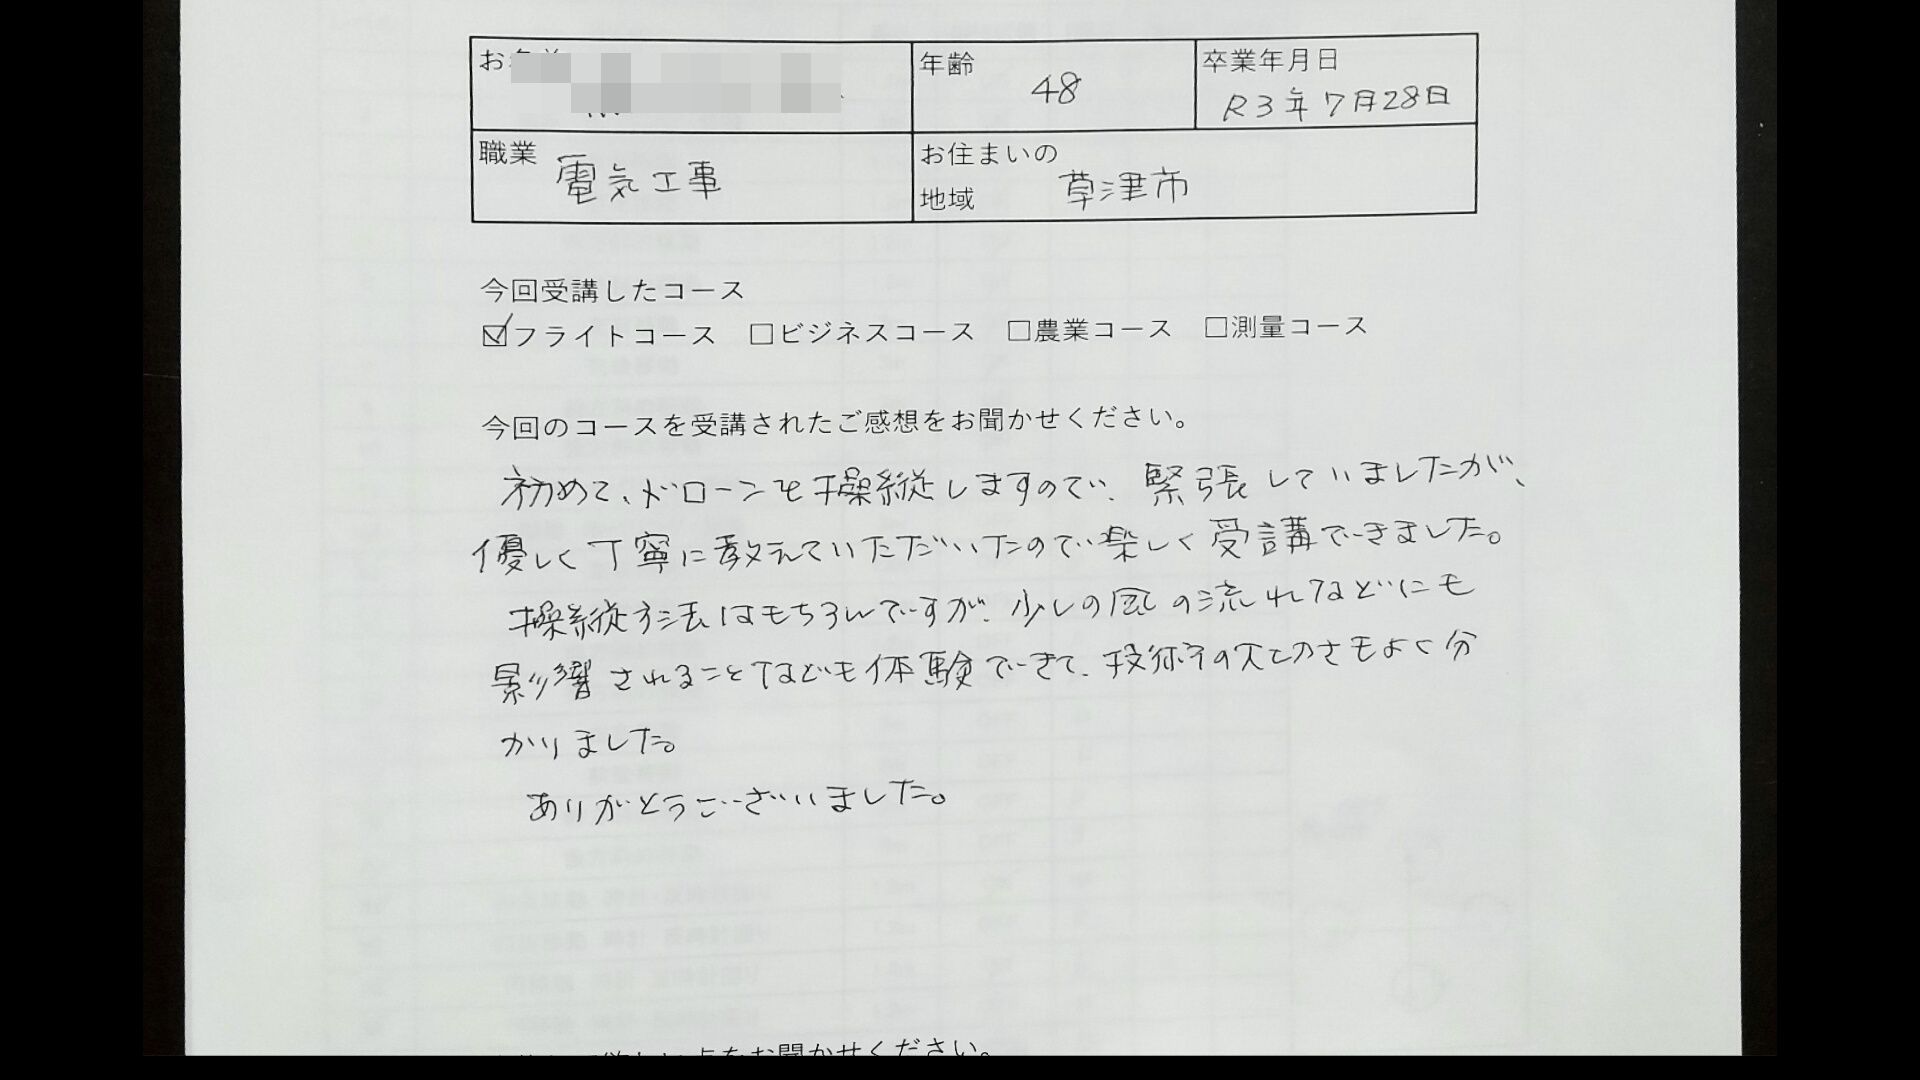 年齢 48
卒業年月日 R3年7月28日
職業 電気工事
お住まいの
地域 草津市
今回受講したコース
☑フライトコース □ビジネスコース □農業コース □測量コース
今回のコースを受講されたご感想をお聞かせください。
初めて、ドローンを操縦しますので、緊張していましたが、
優しく丁寧に教えていただいたので楽しく受講できました。
操縦方法はもちろんですが、少しの風の流れなどにも
影響されることなども体験できて、技術の大切さもよく分
かりました。
ありがとうございました。
点をお聞かせください。